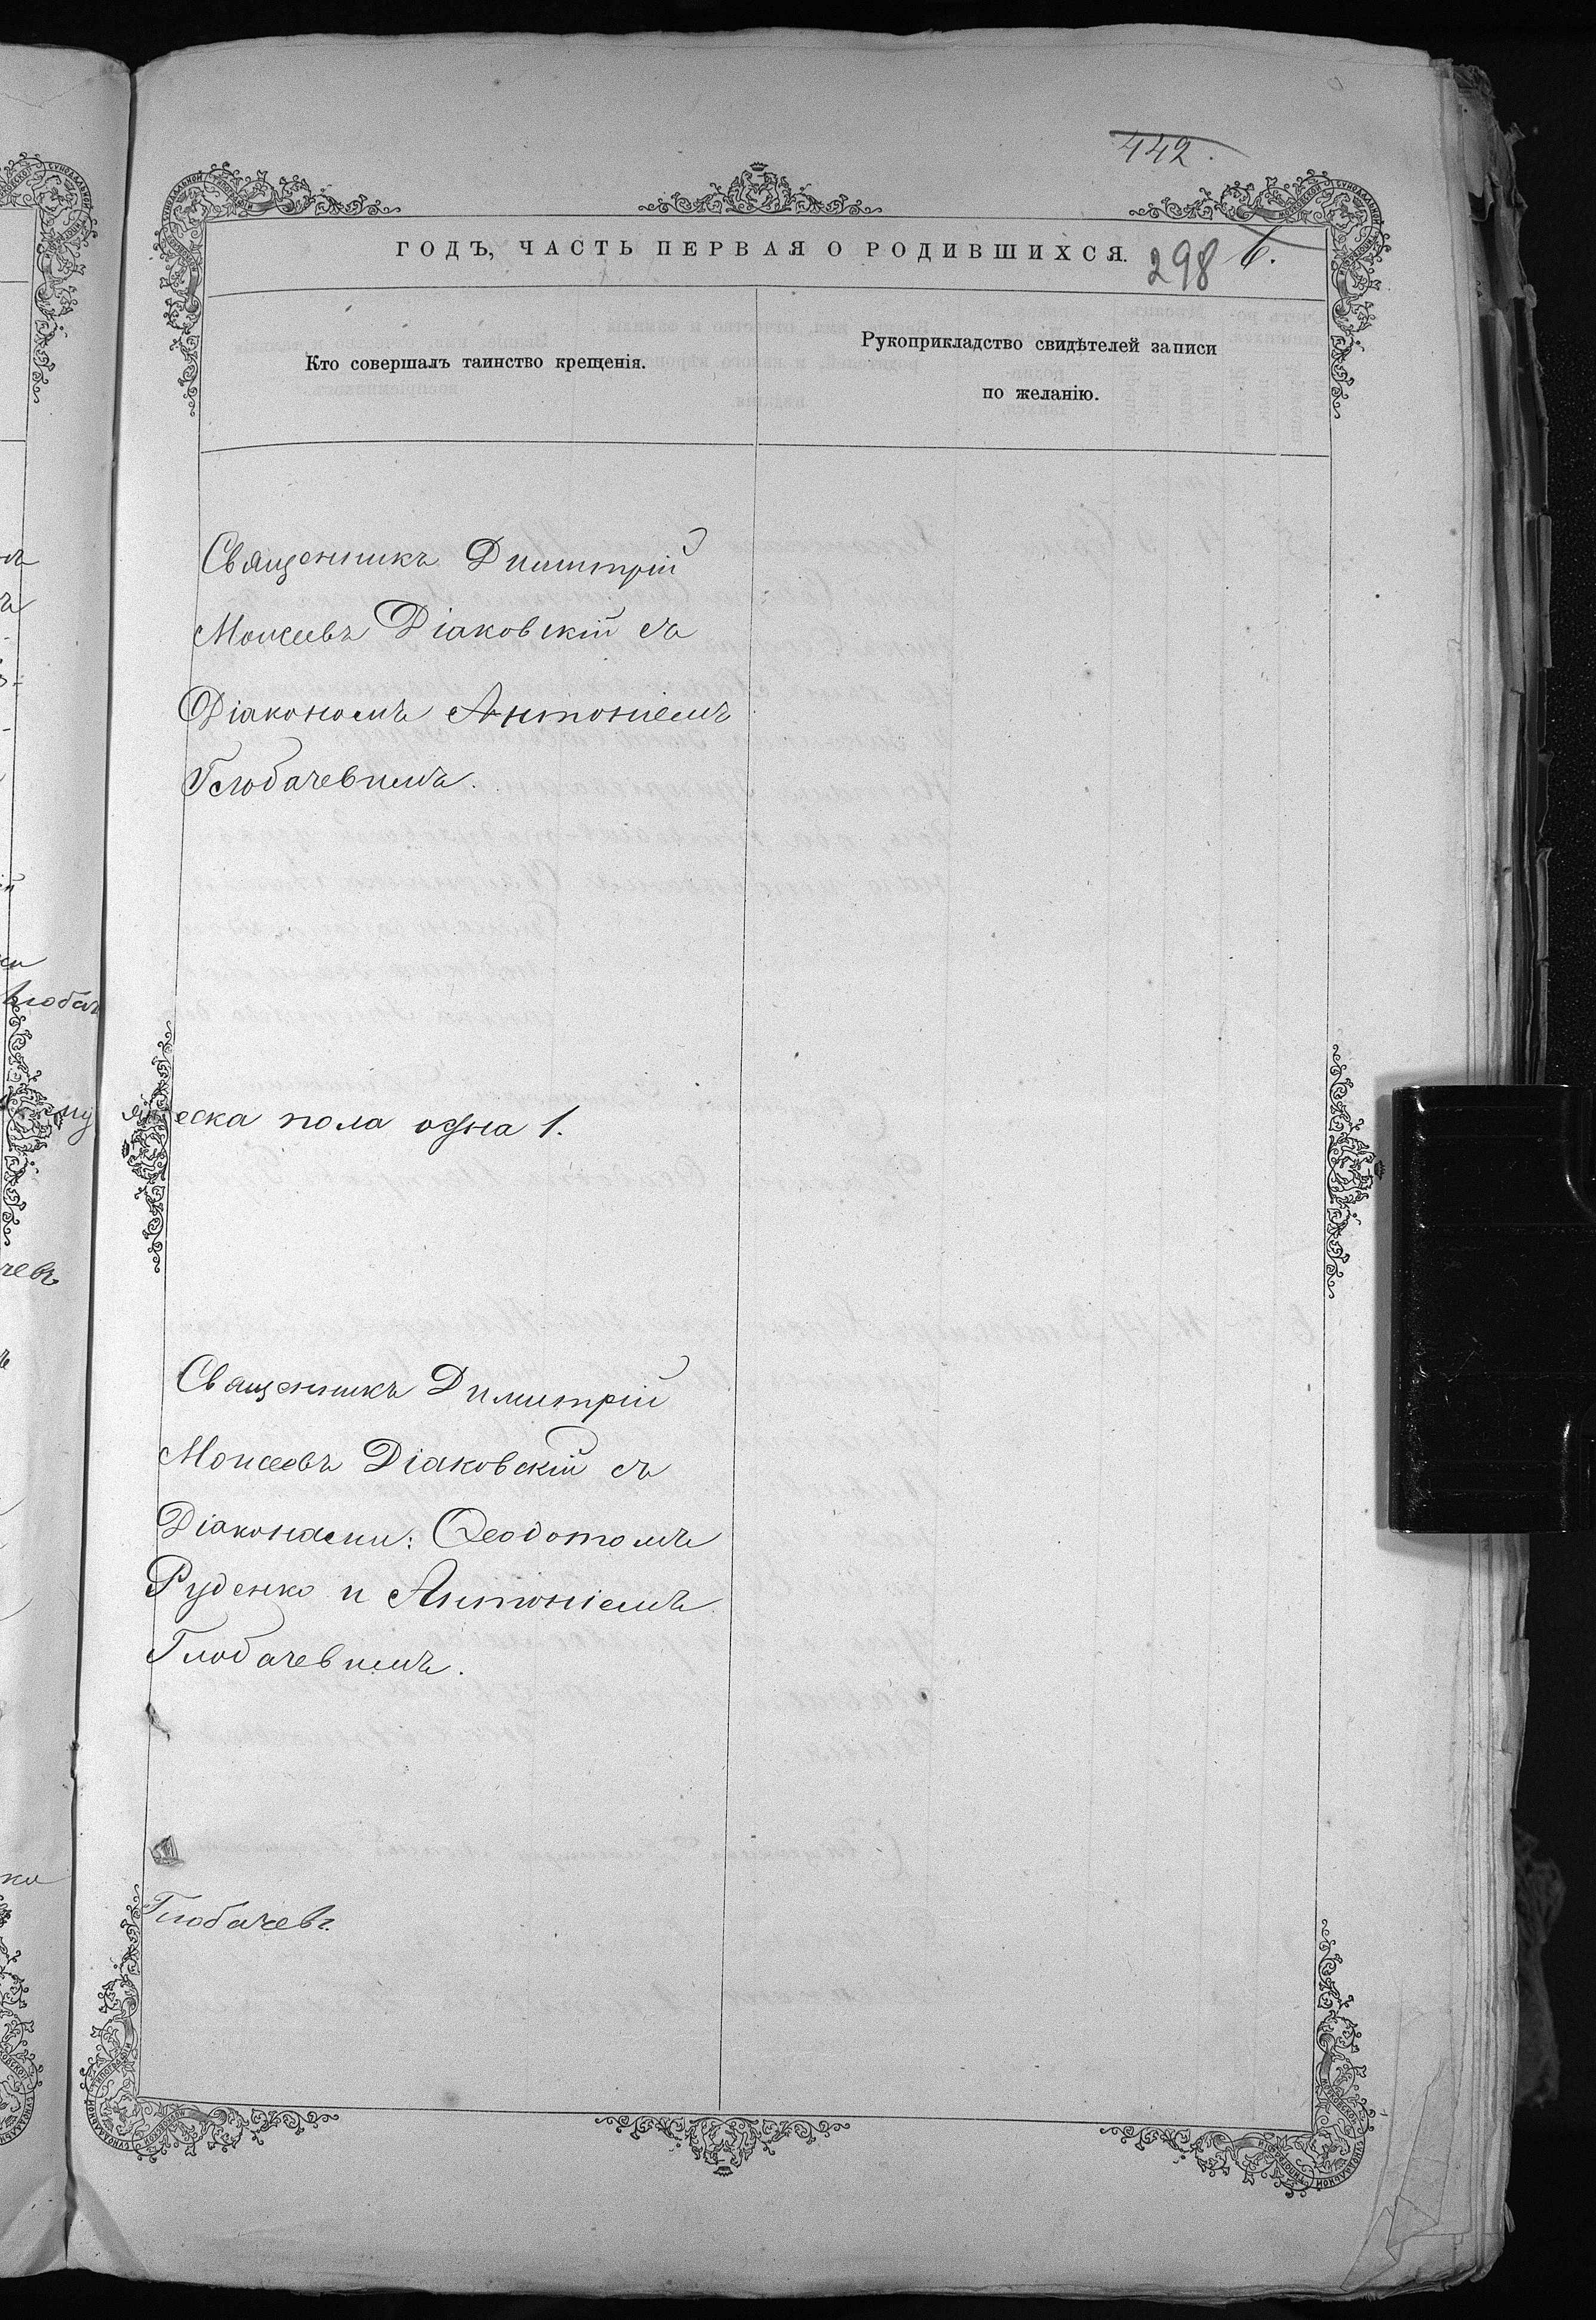 442.
ГОДЪ, ЧАСТЬ ПЕРВАЯ О РОДИВШИХСЯ.
298
6.
Кто совершалъ таинство крещенія.
Рукоприкладство свидѣтелей записи
по желанію.
Священникъ Димитрій
Моисеевъ Діаковскій съ
Діакономъ Антоніемъ
Глобачевымъ.
еска пола одна 1.
Священникъ Димитрій
Моисеевъ Діаковскій съ
Діаконами: Ѳеодотомъ
Руденко и Антоніемъ
Глобачевымъ.
Глобачевъ.